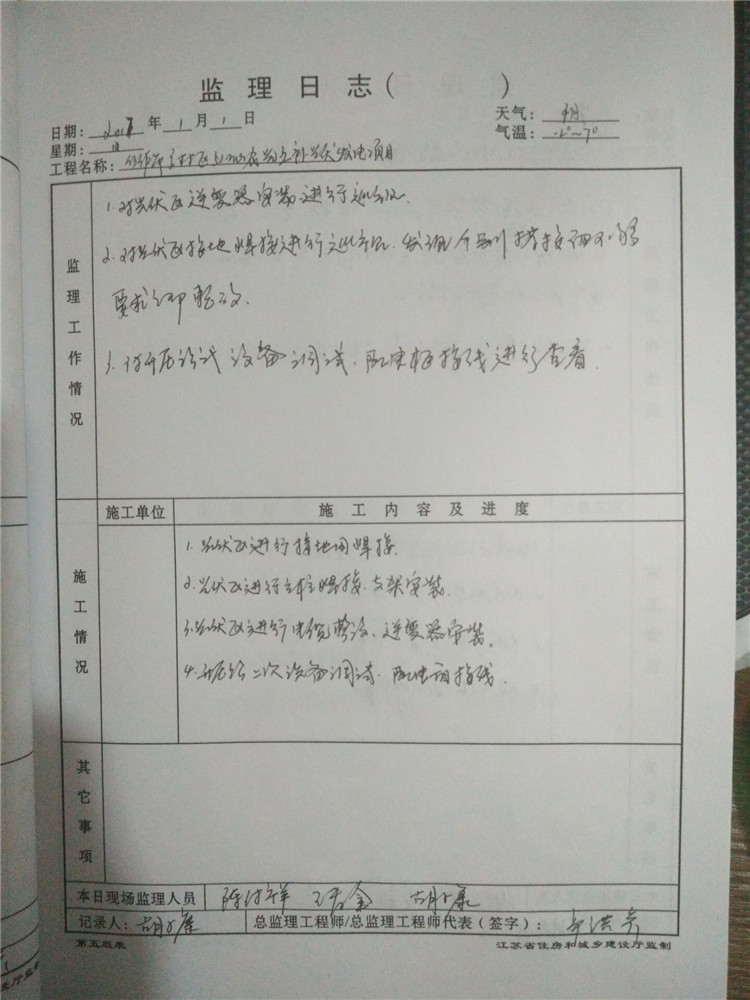 监 理 日 志 ( )
日期： 2017 年 1 月 1 日 天气： 阴
星期： 日 气温： -2°~7°
工程名称： 农光互补光伏发电项目
监理工作情况
1. 对光伏区逆变器安装进行巡视.
2. 对光伏区接地焊接进行巡视, 发现个别搭接面不够
要求立即整改.
3. 对升压站 设备调试, 配电柜接线进行查看.
施工情况
施工单位 施 工 内 容 及 进 度
1. 光伏区进行接地网焊接.
2. 光伏区进行立柱焊接. 支架安装.
3. 光伏区进行电缆敷设、逆变器安装.
4. 升压站二次设备调试. 配电 接线.
其它事项
本日现场监理人员
记录人： 总监理工程师/总监理工程师代表（签字）：
第五版表 江苏省住房和城乡建设厅监制